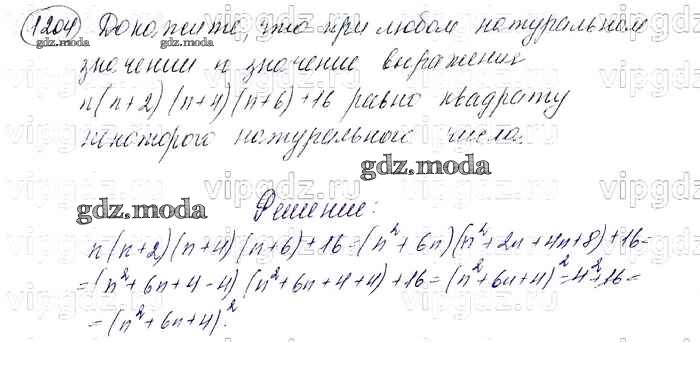 1204 Докажите, что при любом натуральном
значении n значение выражения
n(n+2)(n+4)(n+6)+16 равно квадрату
некоторого натурального числа.
gdz.moda
gdz.moda
gdz.moda
gdz.moda
Решение:
n(n+2)(n+4)(n+6)+16=(n²+6n)(n²+2n+4n+8)+16=
=(n²+6n+4-4)(n²+6n+4+4)+16=(n²+6n+4)²-4²+16=
=(n²+6n+4)².